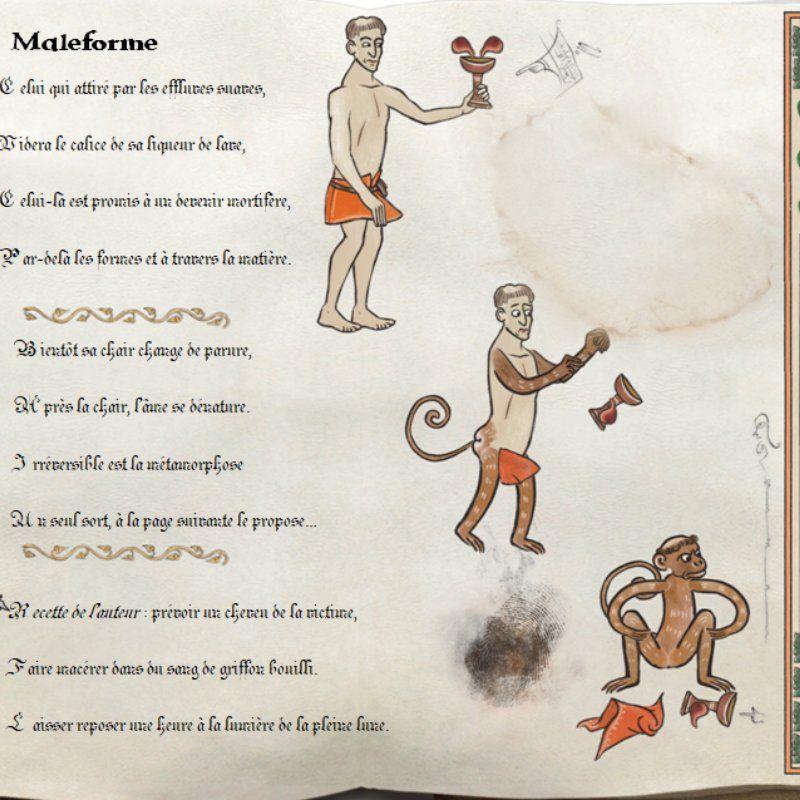 Maleforme
Celui qui attiré par les effluves suaves,
Videra le calice de sa liqueur de lave,
Celui-là est promis à un devenir mortifère,
Par-delà les formes et à travers la matière.
Bientôt sa chair change de parure,
Après la chair, l'âme se dénature.
Irréversible est la métamorphose
Un seul sort, à la page suivante le propose...
Recette de l'auteur : prévoir un cheveu de la victime,
Faire macérer dans du sang de griffon bouilli.
Laisser reposer une heure à la lumière de la pleine lune.